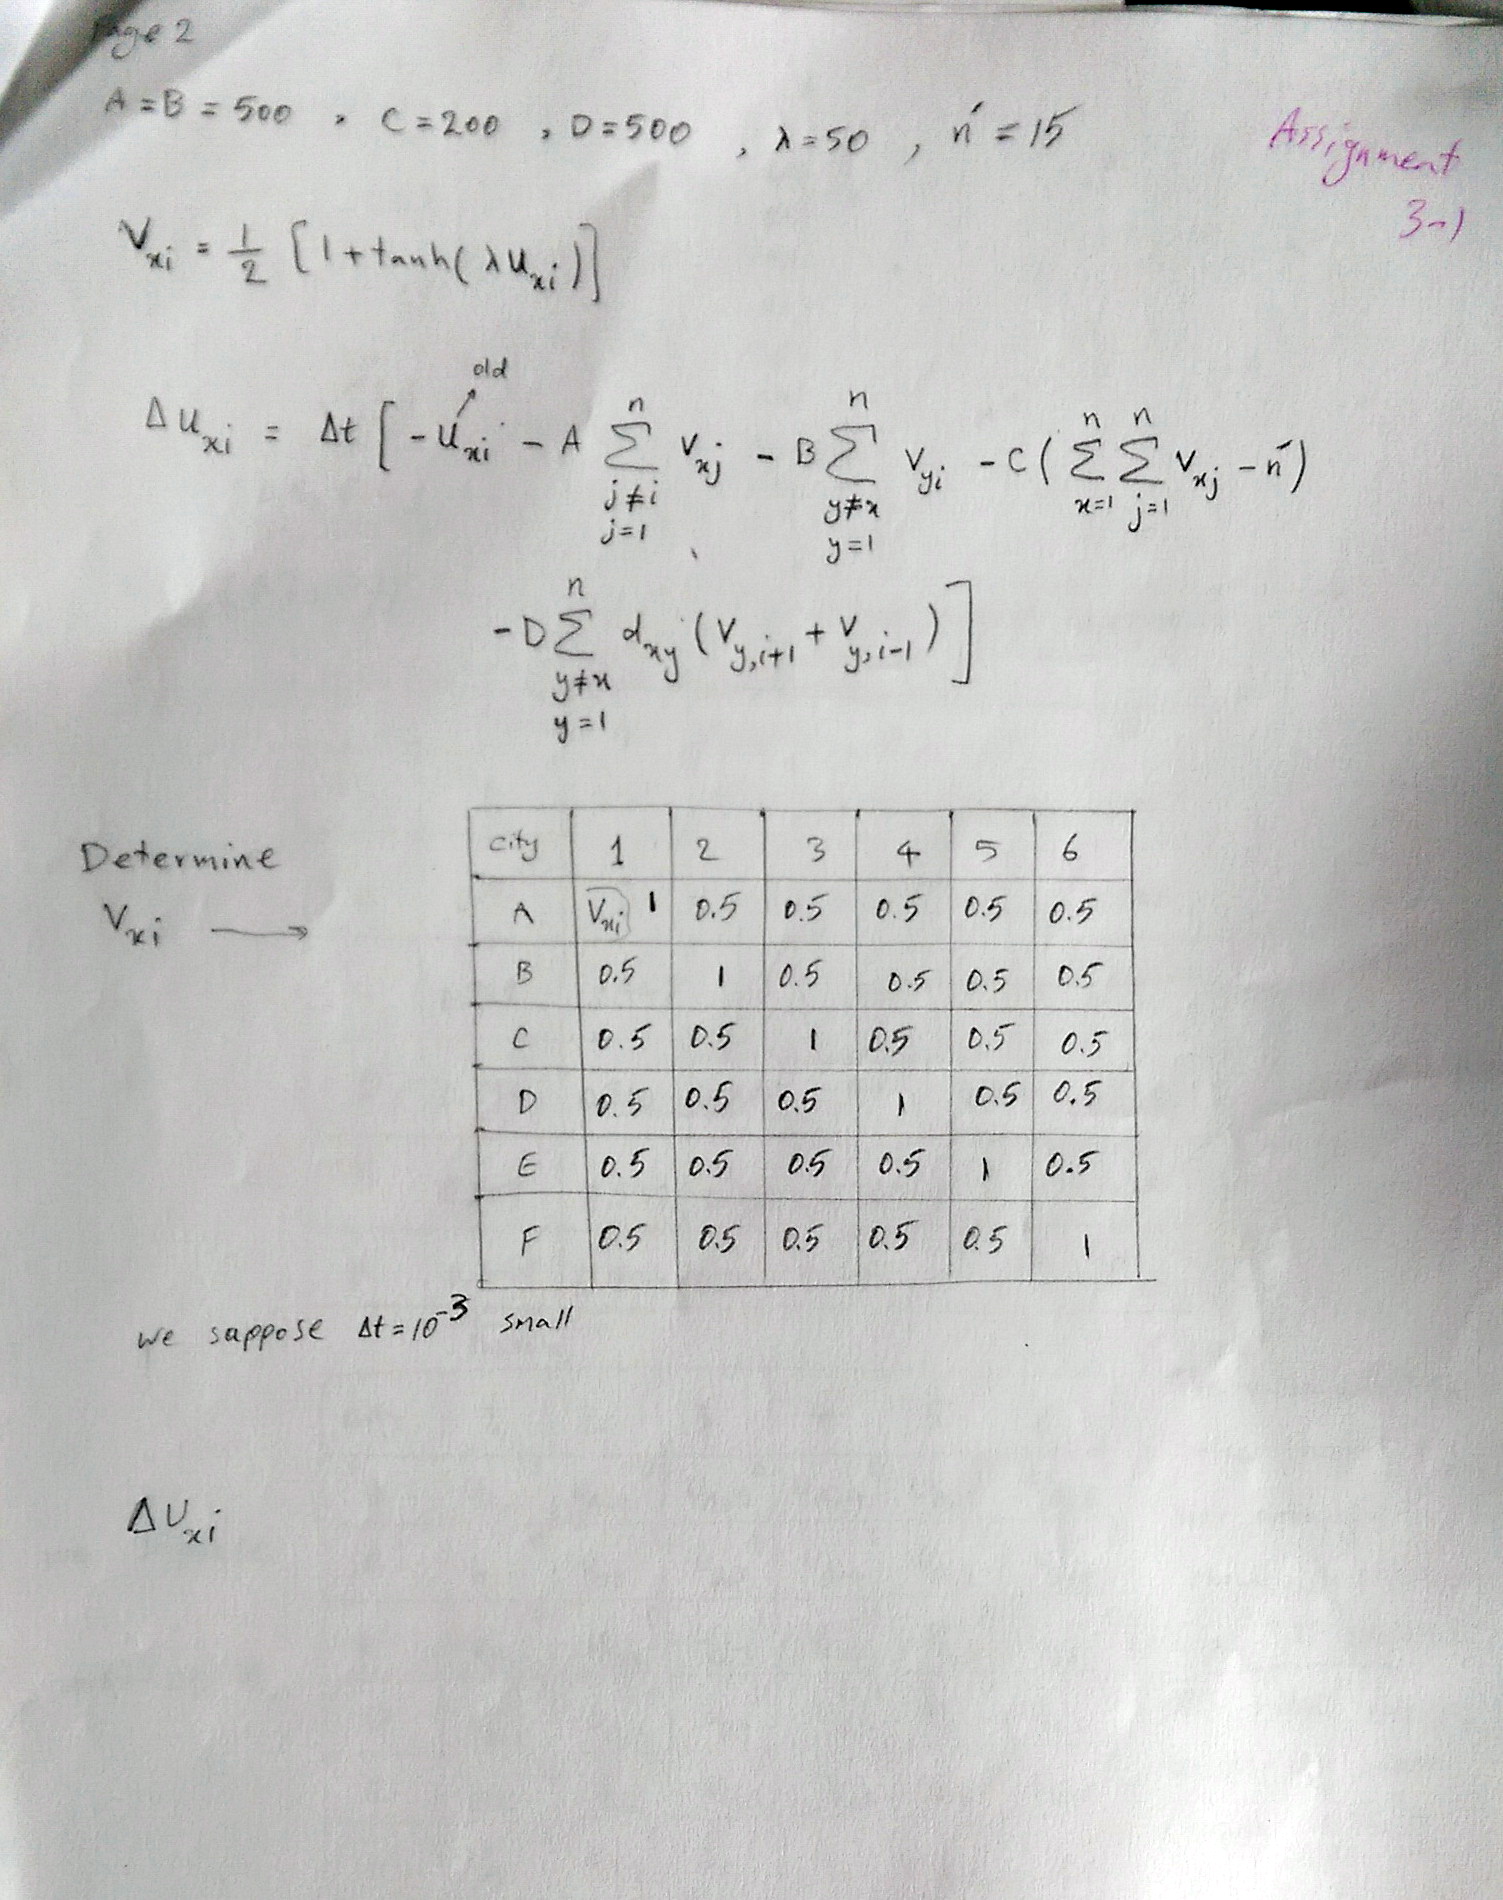 Page 2
A = B = 500 , C = 200 , D = 500 , λ = 50 , n' = 15
Assignment
3-1
V_xi = 1/2 [1 + tanh(λ u_xi)]
old
Δu_xi = Δt [ -u_xi - A Σ_{j≠i, j=1}^{n} V_xj - B Σ_{y≠x, y=1}^{n} V_yi - C ( Σ_{x=1}^{n} Σ_{j=1}^{n} V_xj - n' )
- D Σ_{y≠x, y=1}^{n} d_xy ( V_y,i+1 + V_y,i-1 ) ]
Determine
V_xi →
city 1 2 3 4 5 6
A V_xi 1 0.5 0.5 0.5 0.5 0.5
B 0.5 1 0.5 0.5 0.5 0.5
C 0.5 0.5 1 0.5 0.5 0.5
D 0.5 0.5 0.5 1 0.5 0.5
E 0.5 0.5 0.5 0.5 1 0.5
F 0.5 0.5 0.5 0.5 0.5 1
we suppose Δt = 10^-3 small
ΔU_xi